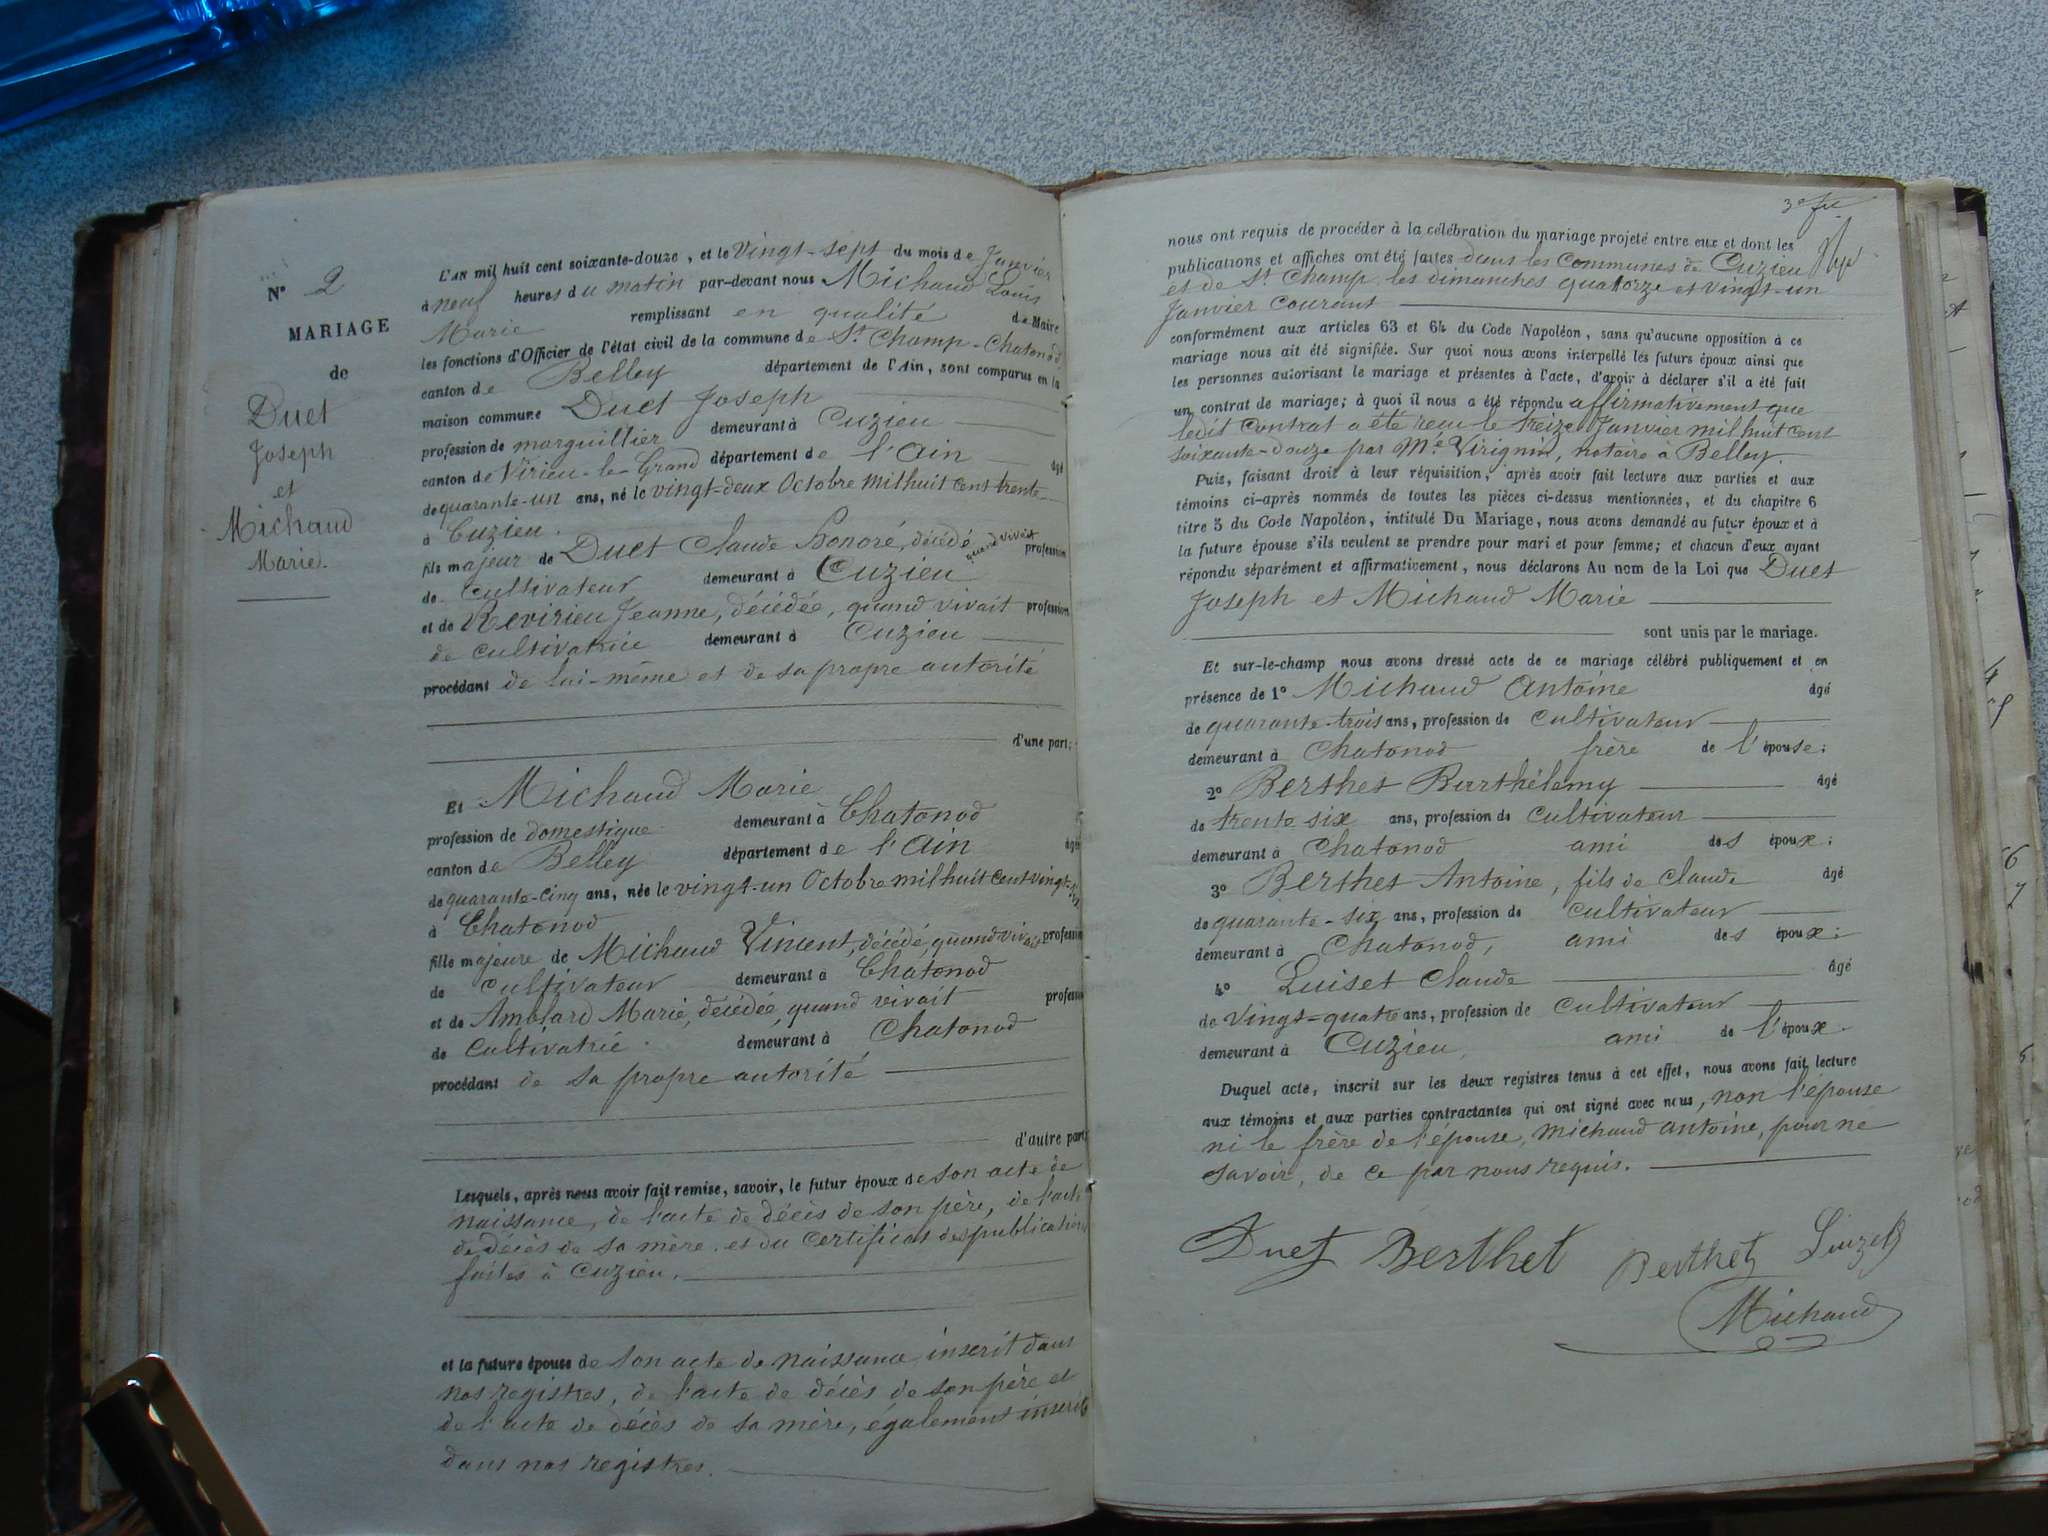 N° 2
MARIAGE
de
Duet
Joseph
et
Michaud
Marie.
L'AN mil huit cent soixante-douze, et le vingt-sept du mois de Janvier
à neuf heures du matin par-devant nous Michaud Louis
Marie remplissant en qualité de Maire
les fonctions d'Officier de l'état civil de la commune de St Champ-Chatonod,
canton de Belley département de l'Ain, sont comparus en la
maison commune Duet Joseph
profession de marguillier demeurant à Cuzieu
canton de Virieu-le-Grand département de l'Ain âgé
de quarante-un ans, né le vingt-deux Octobre mil huit cent trente
à Cuzieu.
fils majeur de Duet Claude Honoré, décédé quand vivait profession
de cultivateur demeurant à Cuzieu
et de Revirieu Jeanne, décédée, quand vivait profession
de cultivatrice demeurant à Cuzieu
procédant de lui-même et de sa propre autorité
d'une part;
Et Michaud Marie
profession de domestique demeurant à Chatonod
canton de Belley département de l'Ain âgée
de quarante-cinq ans, née le vingt-un Octobre mil huit cent vingt-six
à Chatonod
fille majeure de Michaud Vincent, décédé, quand vivait profession
de cultivateur demeurant à Chatonod
et de Amblard Marie, décédée, quand vivait profession
de cultivatrice. demeurant à Chatonod
procédant de sa propre autorité
d'autre part;
Lesquels, après nous avoir fait remise, savoir, le futur époux de son acte de
naissance, de l'acte de décès de son père, de l'acte
de décès de sa mère, et du certificat des publications
faites à Cuzieu.
et la future épouse de son acte de naissance, inscrit dans
nos registres, de l'acte de décès de son père et
de l'acte de décès de sa mère, également inscrits
dans nos registres.
nous ont requis de procéder à la célébration du mariage projeté entre eux et dont les
publications et affiches ont été faites dans les communes de Cuzieu
et de St Champ les dimanches quatorze et vingt-un
Janvier courant
conformément aux articles 63 et 64 du Code Napoléon, sans qu'aucune opposition à ce
mariage nous ait été signifiée. Sur quoi nous avons interpellé les futurs époux ainsi que
les personnes autorisant le mariage et présentes à l'acte, d'avoir à déclarer s'il a été fait
un contrat de mariage; à quoi il nous a été répondu affirmativement que
ledit contrat a été reçu le treize Janvier mil huit cent
soixante-douze par Me Virignin, notaire à Belley.
Puis, faisant droit à leur réquisition, après avoir fait lecture aux parties et aux
témoins ci-après nommés de toutes les pièces ci-dessus mentionnées, et du chapitre 6
titre 5 du Code Napoléon, intitulé Du Mariage, nous avons demandé au futur époux et à
la future épouse s'ils veulent se prendre pour mari et pour femme; et chacun d'eux ayant
répondu séparément et affirmativement, nous déclarons Au nom de la Loi que Duet
Joseph et Michaud Marie
sont unis par le mariage.
Et sur-le-champ nous avons dressé acte de ce mariage célébré publiquement et en
présence de 1° Michaud Antoine âgé
de quarante-trois ans, profession de cultivateur
demeurant à Chatonod frère de l'épouse;
2° Berthet Barthélemy âgé
de trente six ans, profession de cultivateur
demeurant à Chatonod ami des époux;
3° Berthet Antoine, fils de Claude âgé
de quarante-six ans, profession de cultivateur
demeurant à Chatonod, ami des époux;
4° Luiset Claude âgé
de vingt-quatre ans, profession de cultivateur
demeurant à Cuzieu, ami de l'époux.
Duquel acte, inscrit sur les deux registres tenus à cet effet, nous avons fait lecture
aux témoins et aux parties contractantes qui ont signé avec nous, non l'épouse
ni le frère de l'épouse, Michaud Antoine, pour ne
savoir, de ce par nous requis.
Duet Berthet Berthet Luizet
Michaud